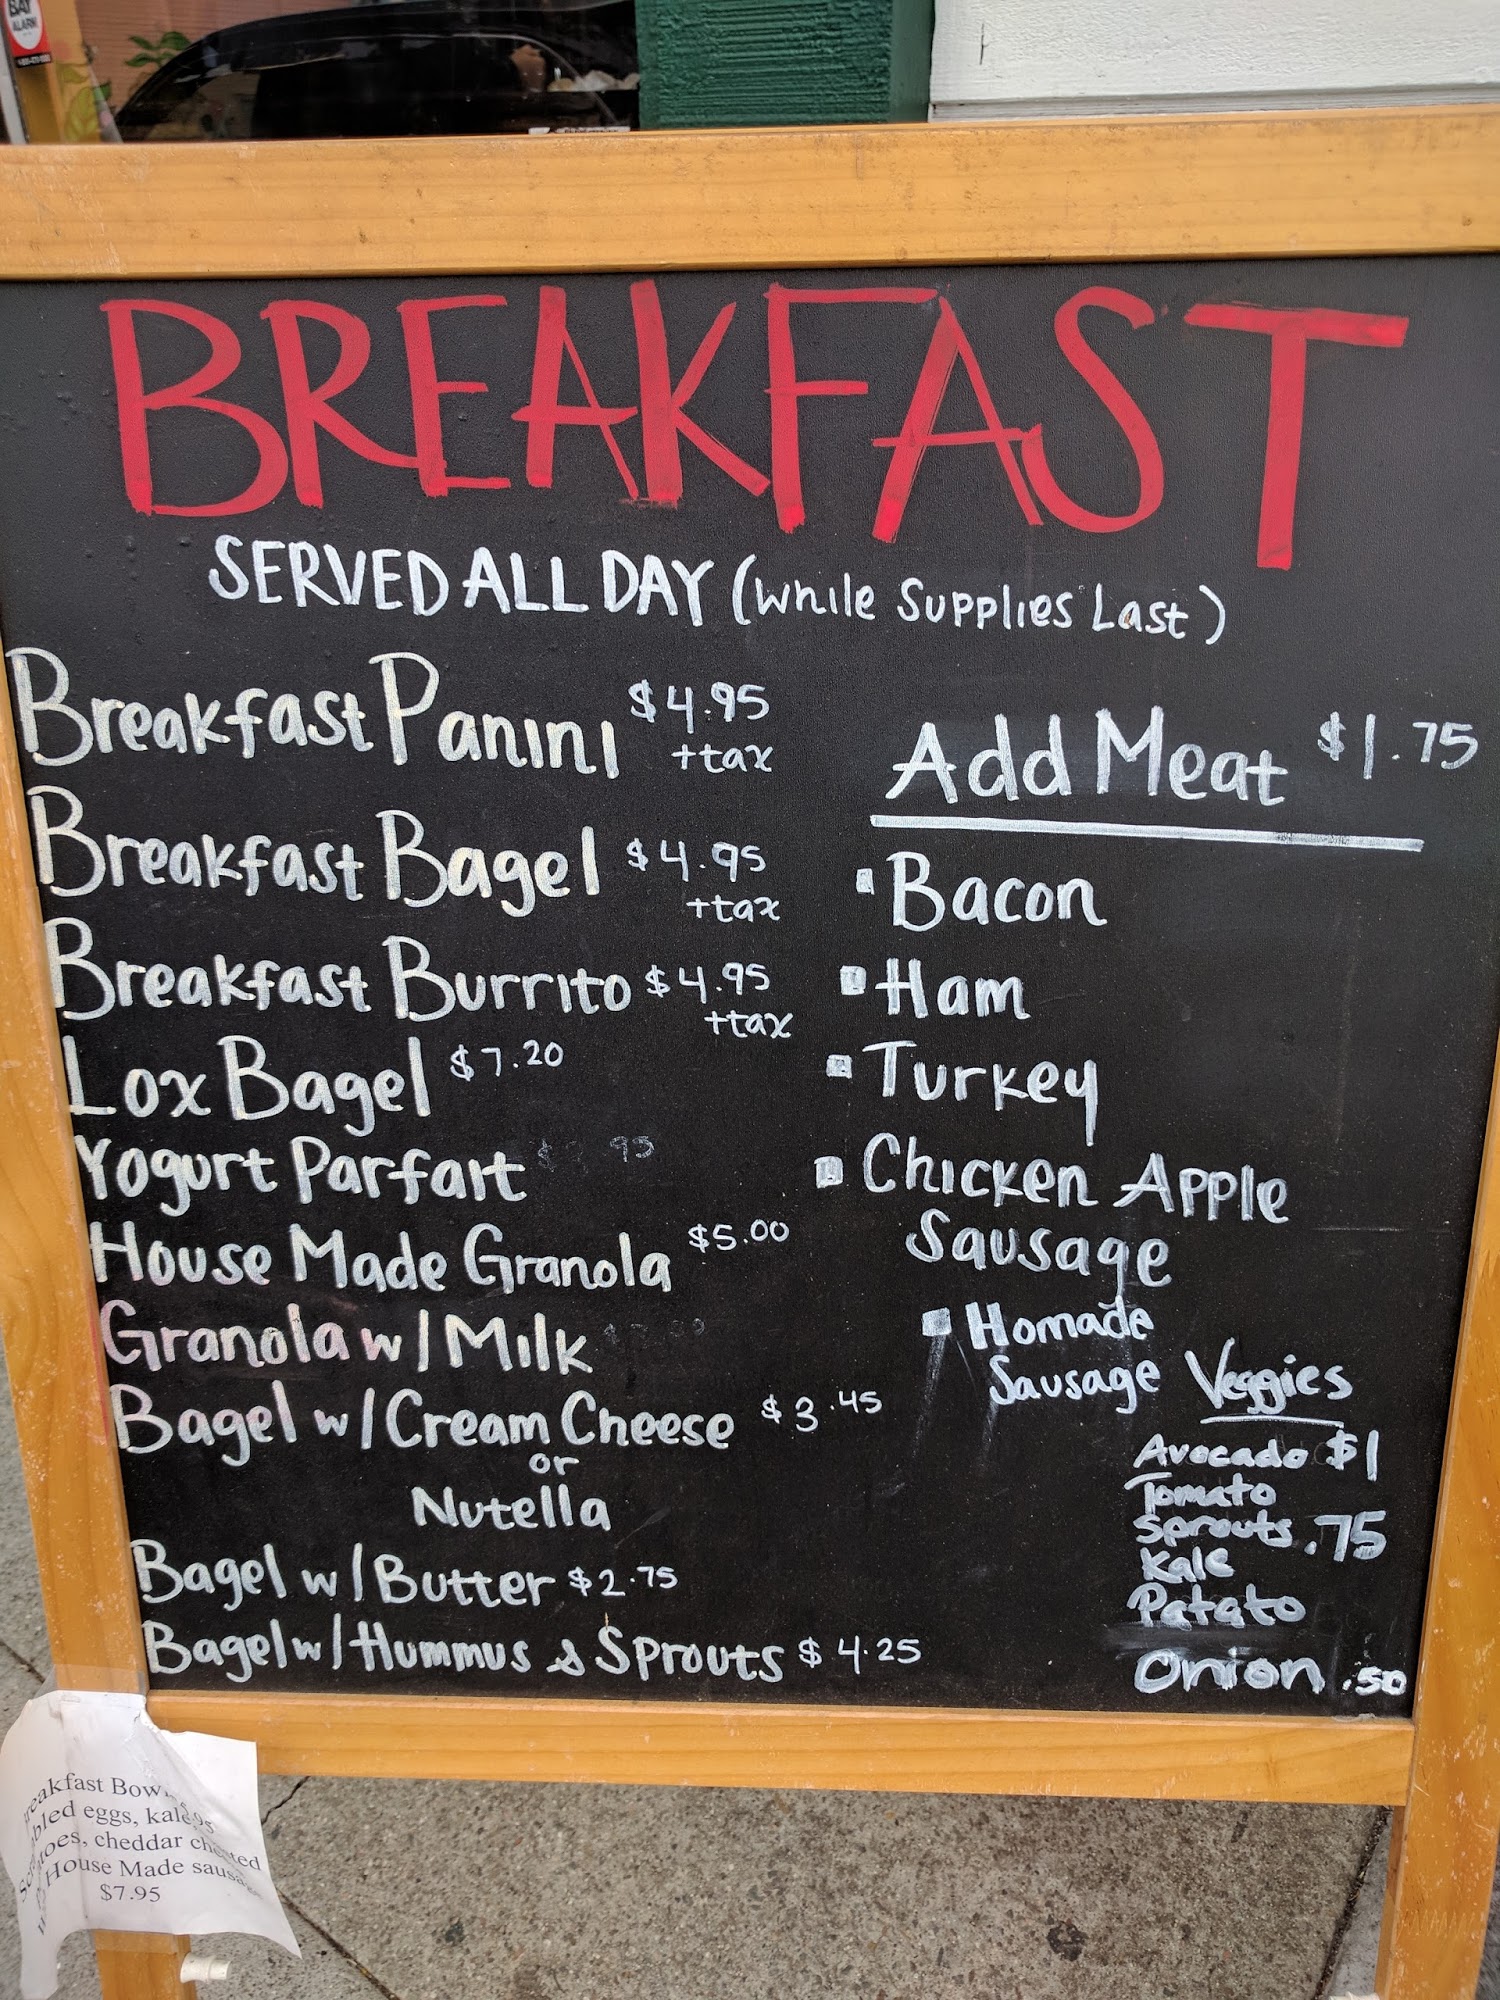 BAY
ALARM
BREAKFAST
SERVED ALL DAY (While Supplies Last)
Breakfast Panini $4.95
+tax
Breakfast Bagel $4.95
+tax
Breakfast Burrito $4.95
+tax
Lox Bagel $7.20
Yogurt Parfait
House Made Granola $5.00
Granola w/ Milk
Bagel w/ Cream Cheese $3.45
or
Nutella
Bagel w/ Butter $2.75
Bagel w/ Hummus & Sprouts $4.25
Add Meat $1.75
Bacon
Ham
Turkey
Chicken Apple
Sausage
Homade
Sausage
Veggies
Avocado $1
Tomato
Sprouts .75
Kale
Patato
Onion .50
eakfast Bow
bled eggs, kale
toes, cheddar
House Made sausa
$7.95